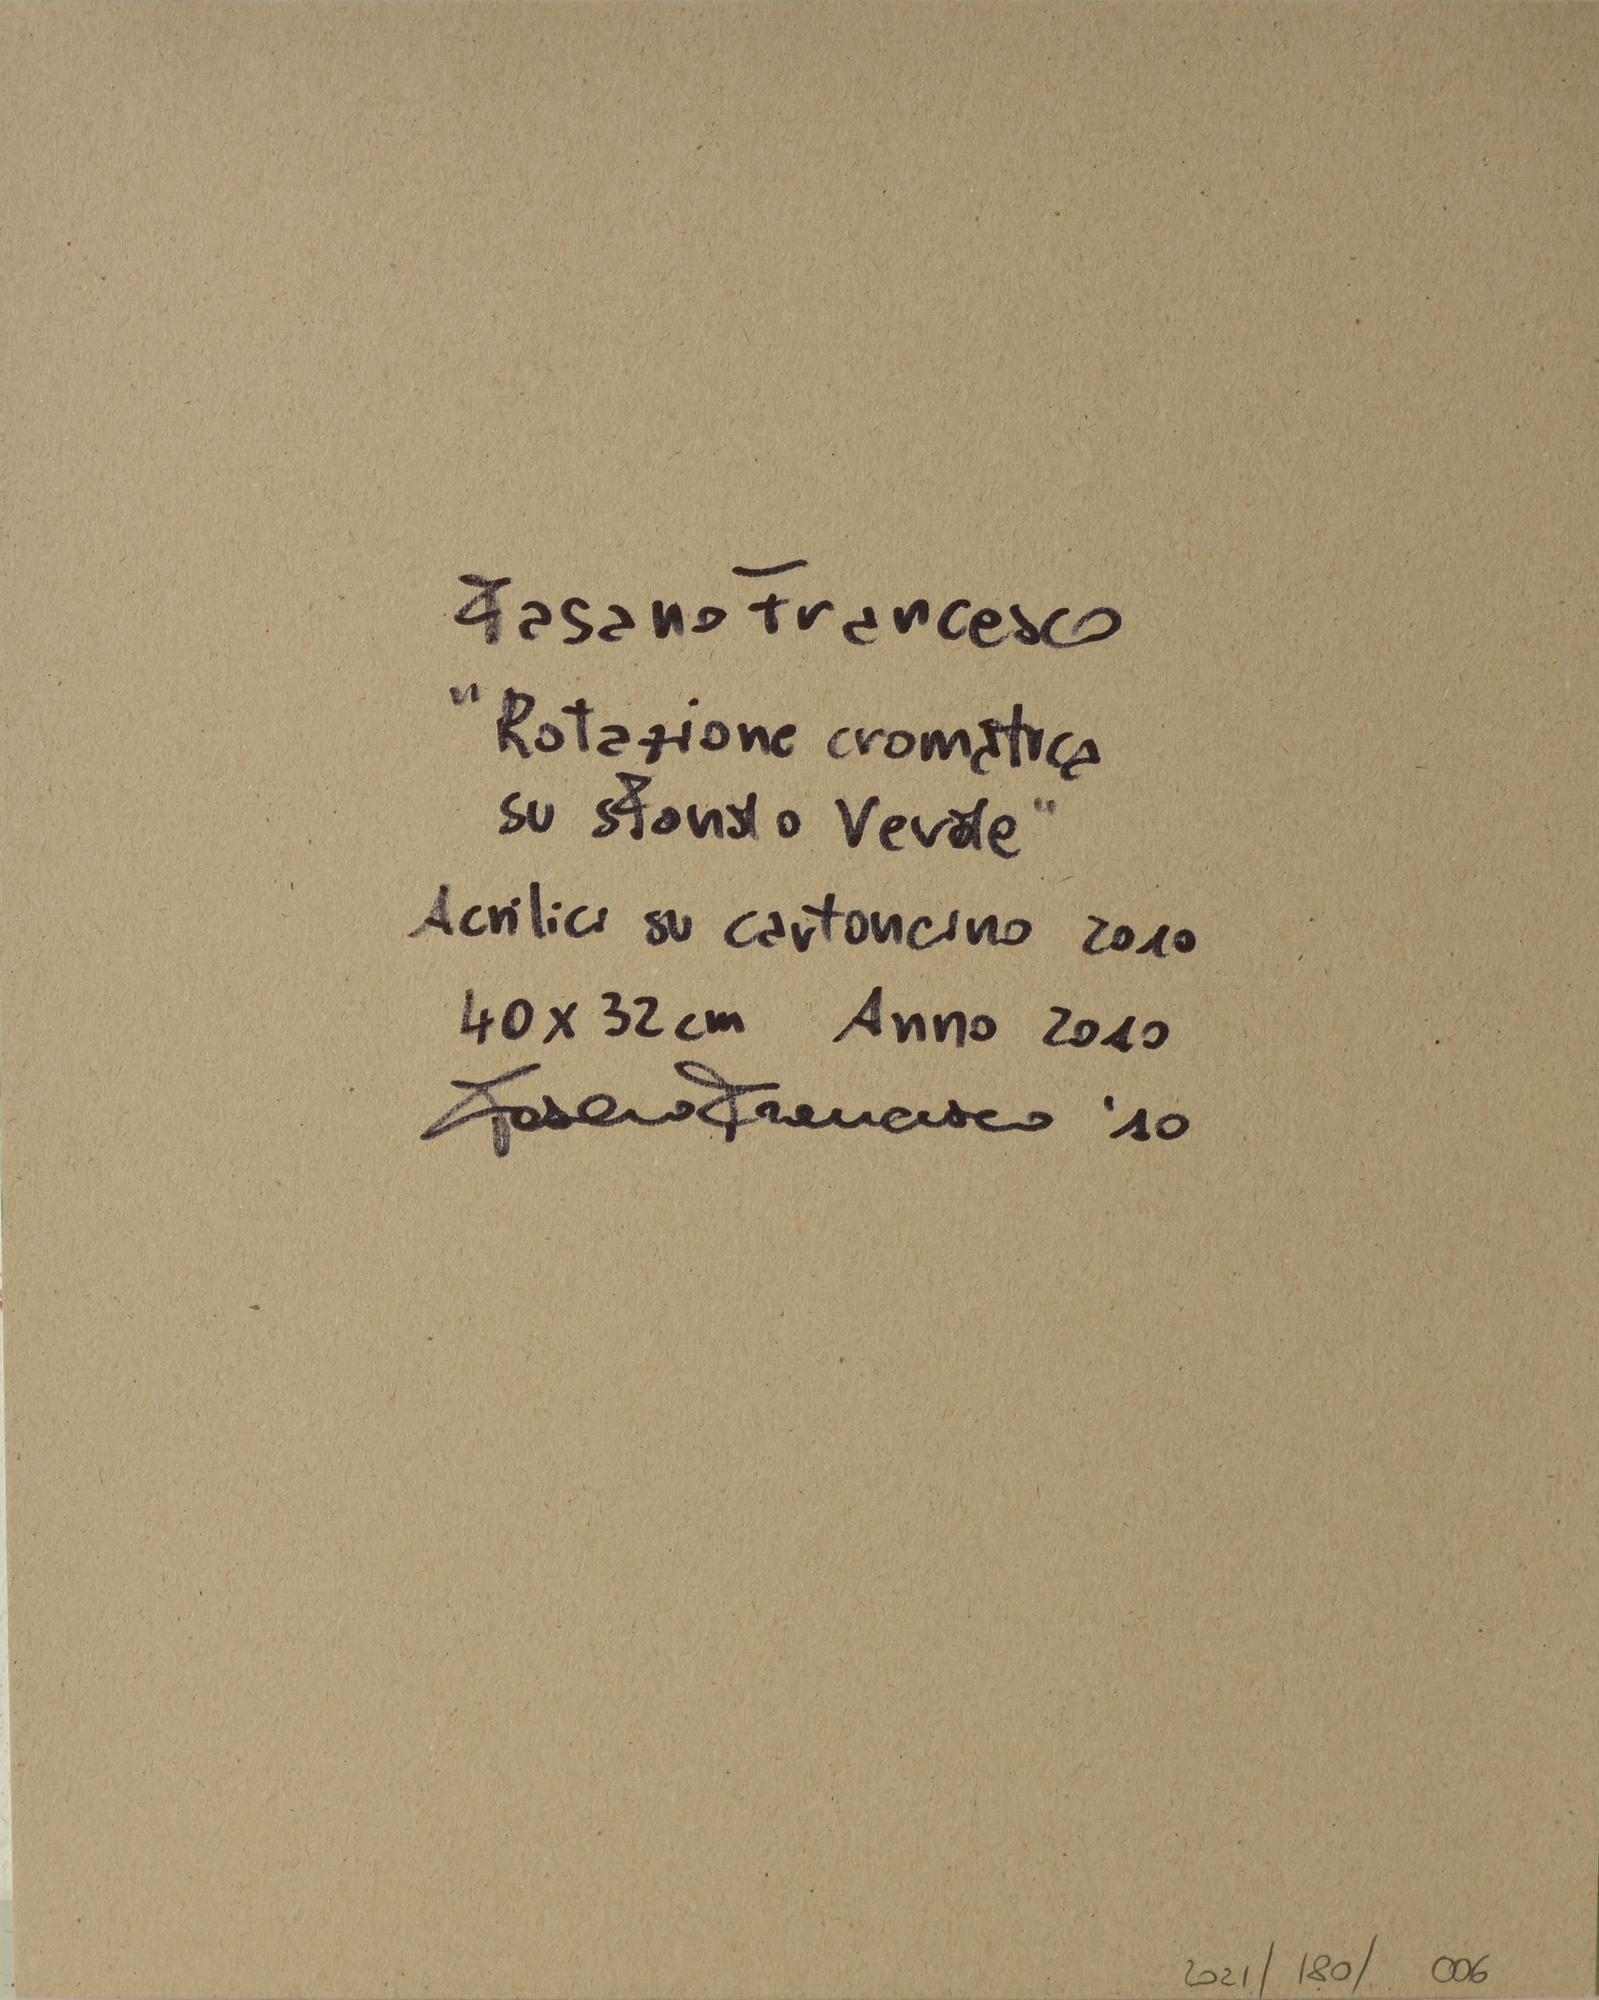 Fasano Francesco
"Rotazione cromatica
su sfondo Verde"
Acrilici su cartoncino 2010
40x32cm Anno 2010
Fasano Francesco '10
2021/ 180/ 006